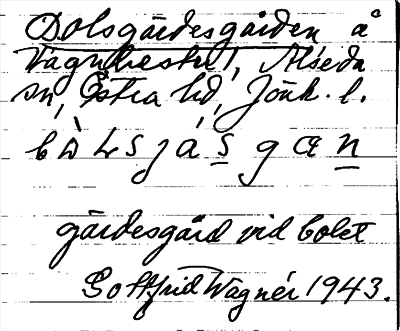 Dolsgärdesgården å
Vagnhester, Alseda
sn, Östra hd, Jönk. l.
gärdesgård vid bolet
Gottfrid Wagnér 1943.